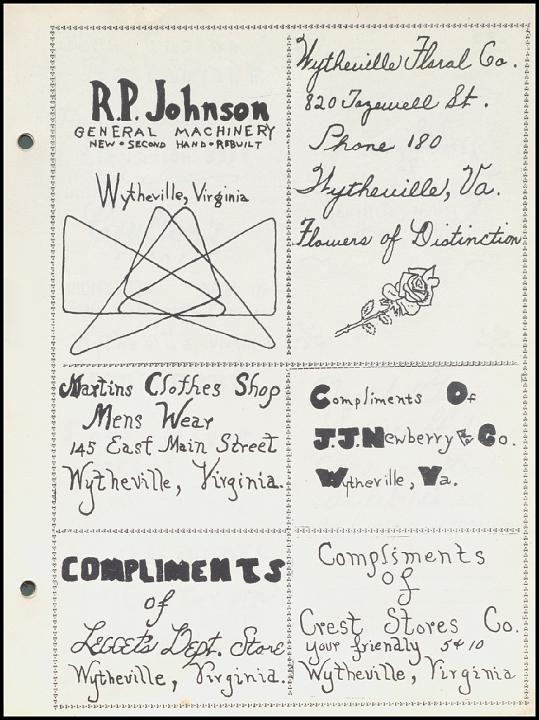 R.P. Johnson
GENERAL MACHINERY
NEW • SECOND HAND • REBUILT
Wytheville, Virginia
Wytheville Floral Co.
820 Tazewell St.
Phone 180
Wytheville, Va.
Flowers of Distinction
Martins Clothes Shop
Mens Wear
145 East Main Street
Wytheville, Virginia.
Compliments Of
J.J. Newberry & Co.
Wytheville, Va.
COMPLIMENTS
of
Leggets Dept. Store
Wytheville, Virginia.
Compliments
of
Crest Stores Co.
your friendly 5¢10
Wytheville, Virginia